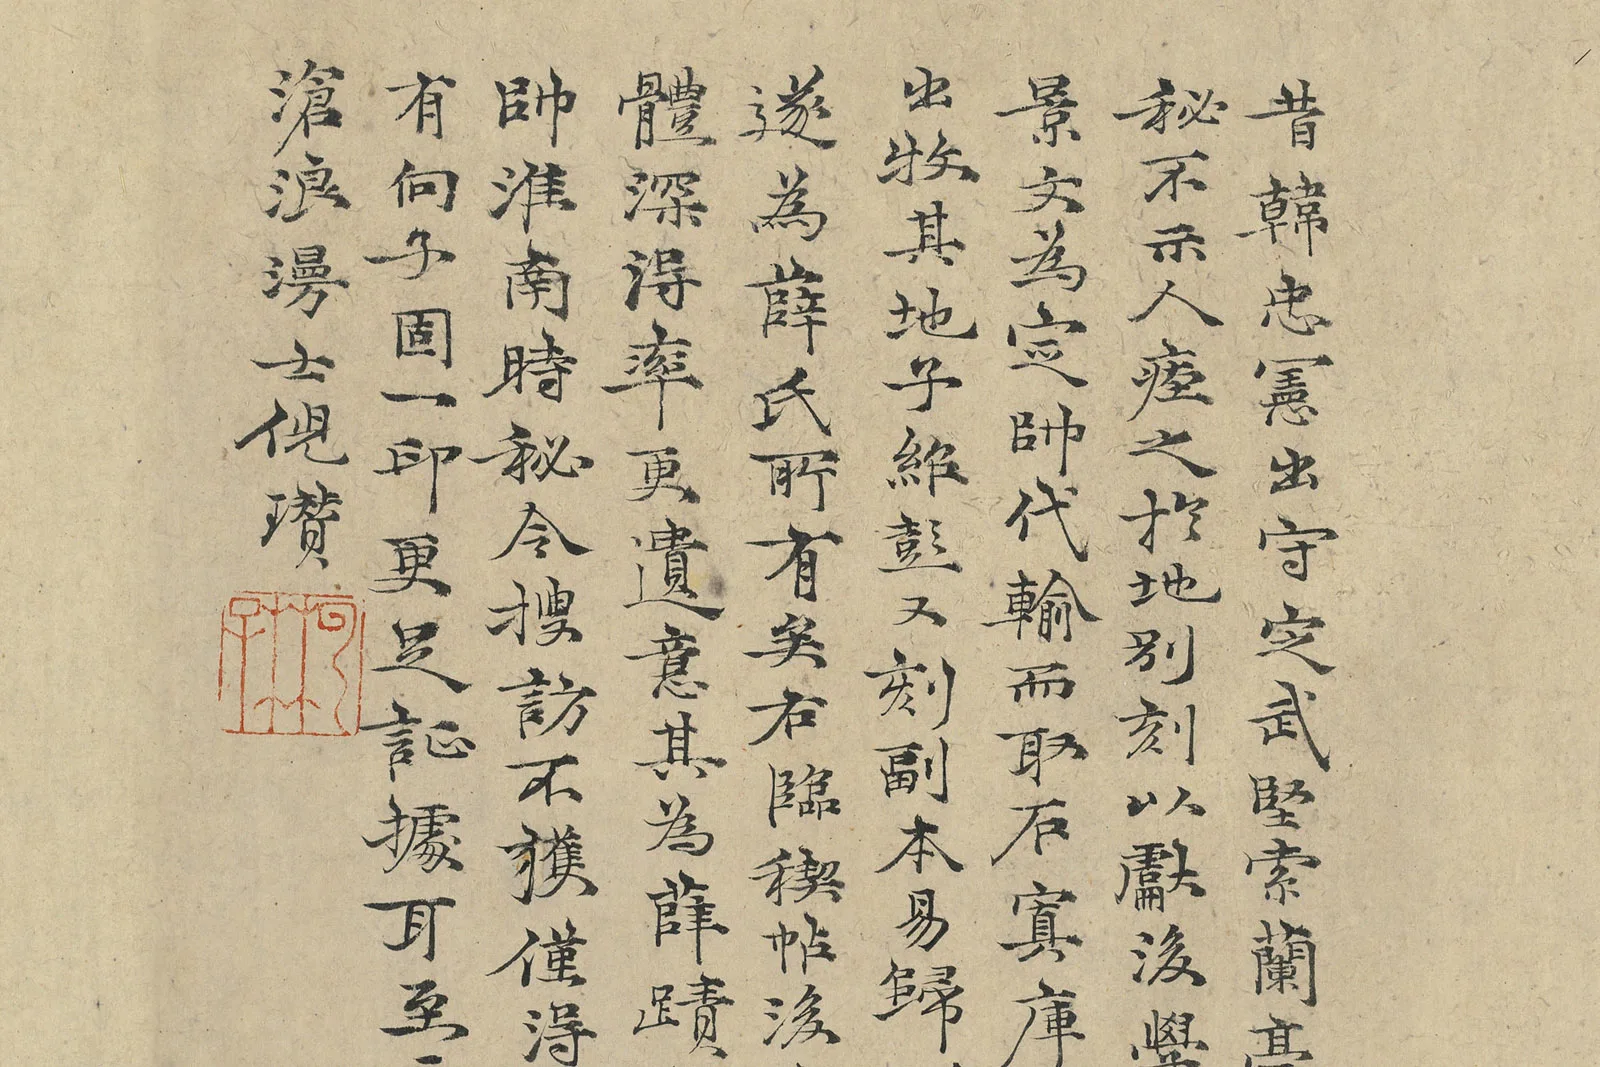 昔韓忠憲出守定武堅索蘭亭
秘不示人瘞之於地別刻以獻後學
景文為定帥代輸而取石寘庫
出牧其地子紹彭又刻副本易歸
遂為薛氏所有矣右臨稧帖後
體深得率更遺意其為薛蹟
帥淮南時秘令搜訪不獲僅得
有向子固一印更足証據耳至
滄浪漫士倪瓚